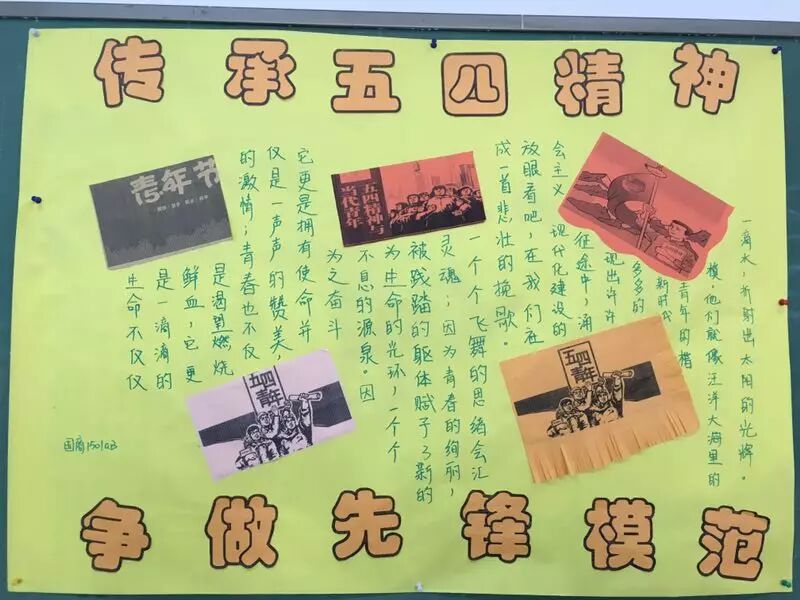 传承五四精神
青年节
五四精神与
当代青年
生命不仅仅
是一滴滴的
鲜血,它更
是渴望燃烧
的激情;青春也不仅
仅是一声声的赞美,
它更是拥有使命并
为之奋斗
不息的源泉。因
为生命的光环,一个个
被践踏的躯体赋予了新的
灵魂;因为青春的绚丽,
一个个飞舞的思绪会汇
成一首悲壮的挽歌。
放眼看吧,在我们在
会主义现代化建设的
征途中,涌
现出许许
多多的
新时代
青年的楷
模,他们就像汪洋大海里的
一滴水,折射出太阳的光辉。
五四
青年
五四
青年
争做先锋模范